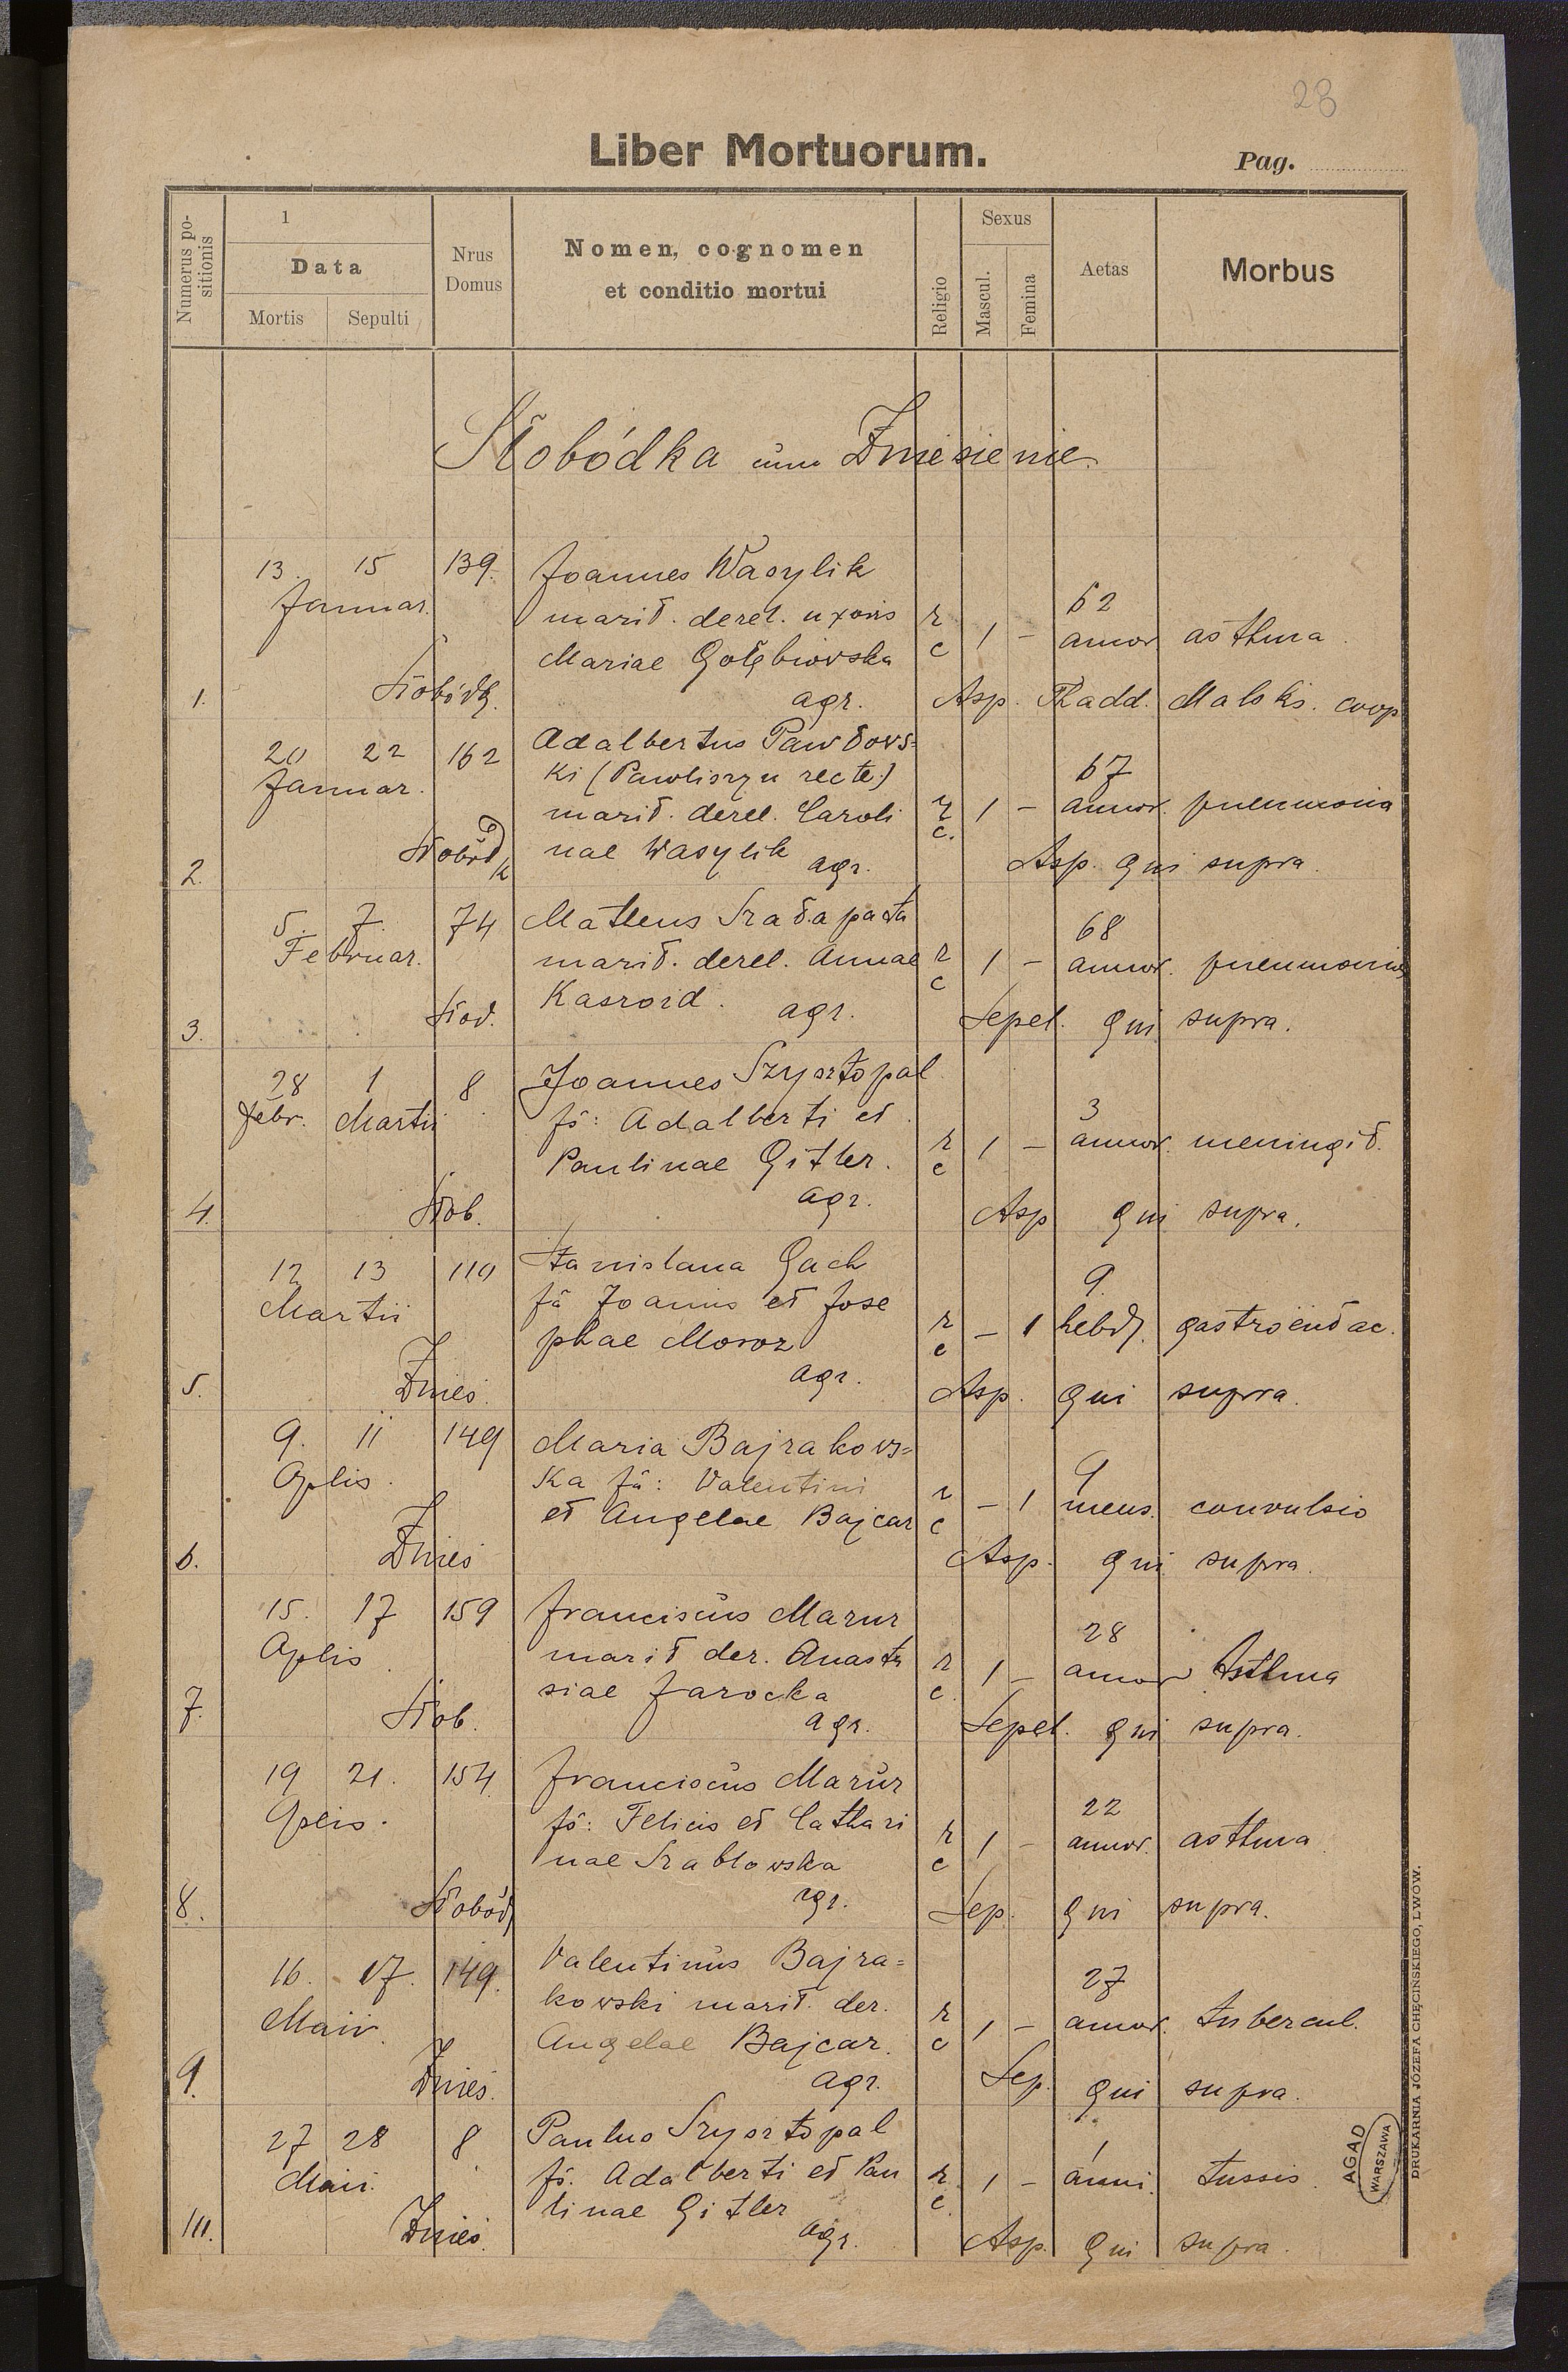 28
Liber Mortuorum.
Pag.
Numerus positionis
1
Data
Mortis
Sepulti
Nrus Domus
Nomen, cognomen
et conditio mortui
Religio
Sexus
Mascul.
Femina
Aetas
Morbus
Słobódka cum Zniesienie
13. 15 139. Joannes Wasylik
Januar. marit. derel. uxoris r 62
Mariae Gołębiowska c 1 - annor asthma.
1. Słobódk. agr. Asp. Thadd. Malski. coop
20 22 162 Adalbertus Pawłows=
Januar. ki (Pawliszyn recte) 67
marit. derel. Caroli r 1 - annor. pneumonia
2. Słobód k nae Wasylik agr. c. Asp. qui supra.
5. 7. 74 Matheus Szałapata 68
Februar. marit. derel. Annae r 1 - annor. pneumonia
Kasroid. agr. c
3. Słob. Sepel. qui supra.
28 1 8. Joannes Szysztopal
Febr. Martii fs: Adalberti et 3
Paulinae Gitler. r c 1 - annor. meningit.
4. Słob. agr. Asp qui supra.
12 13 110 Stanislaua Gach 9.
Martii fa Joannis et Jose r - 1 hebd. gastroentac.
phae Moroz c
5. Znies. agr. Asp. qui supra.
9. 11 149 Maria Bajrakows=
Aplis. ka fa: Valentini r 9
et Angelae Bajcar c - 1 mens. convulsio
6. Znies Asp. qui supra.
15. 17 159 Franciscus Mazur 28
Aplis. marit der. Anasta r 1 - annor Asthma
siae Jarocka c.
7. Słob. agr. Sepel. qui supra.
19 21. 154. Franciscus Mazur
Aplis. fs: Felicis et Cathari r 22
nae Szablowska c 1 - annor. asthma
8. Słobód agr. Sep. qui supra.
16. 17. 149. Valentinus Bajra=
kowski marit. der. r 27
Maii. Angelae Bajcar. c 1 - annor. tubercul.
9. Znies. agr. Sep. qui supra.
27 28 8 Paulus Szysztopal 1
Maii. fs. Adalberti et Pau r 1 - anni. tussis.
linae Gitler c.
10. Znies. agr. Asp. qui supra.
AGAD
WARSZAWA
DRUKARNIA JÓZEFA CHĘCIŃSKIEGO, LWÓW.